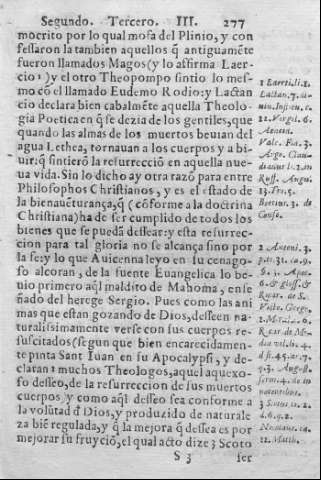 Segundo. Tercero. III. 277
mocrito por lo qual mofa del Plinio, y con
fessaron la tambien aquellos q̃ antiguamẽte
fueron llamados Magos (y lo affirma Laer-
cio 1) y el otro Theopompo sintio lo mes-
mo cõ el llamado Eudemo Rodio: y Lactan
cio declara bien cabalmẽte aquella Theolo-
gia Poetica en q̃ se dezia de los gentiles, que
quando las almas de los muertos beuian del
agua Lethea, tornauan a los cuerpos y a bi-
uir: q̃ sintierõ la resurrecciõ en aquella nue-
ua vida. Sin lo dicho ay otra razõ para entre
Philosophos Christianos, y es el estado de
la bienauẽturança, q̃ (cõforme a la doctrina
Christiana) ha de ser cumplido de todos los
bienes que se puedã dessear: y esta resurrec-
cion para tal gloria no se alcança sino por
la fe: y lo que Auicenna leyo en su cenago-
so alcoran, de la fuente Euangelica lo be-
uio primero aq̃l maldito de Mahoma, ense
ñado del herege Sergio. Pues como las ani
mas que estan gozando de Dios, desseen na
turalissimamente verse con sus cuerpos re-
suscitados (segun que bien encarecidamen-
te pinta Sant Iuan en su Apocalypsi, y de-
claran 2 muchos Theologos, aquel aquexo-
so desseo, de la resurreccion de sus muertos
cuerpos) y como aq̃l desseo sea conforme a
la volũtad d̃ Dios, y produzido de naturale
za biẽ regulada, y q̃ la mejora q̃ dessea es por
mejorar su fruyciõ, el qual acto dize 3 Scoto
S 3 ser
1 Laerti. li. 1.
Lactan. 7. di-
uin. Insti.
22. Virgil. 6.
Aeneid.
Vale. Fla. 3.
Argo. Clau-
dianus li. 2. in
Ruff. Augu.
13. Tri. 5.
Boetius. 3. de
Conso.
2 Antoni. 3.
p. tit. 31. ca. 9.
6. 1. Apoc.
6. & gloss. &
Ricar. de S.
Victo. Greg.
2. Moral. 6.
Ricar. de Me-
dia vil. li. 4.
d. 45. ar. 7.
q. 3. August.
serm. 4. de in
nocentibus.
3 Scotus in. 2.
d. 6. q. 2.
22. Matth.